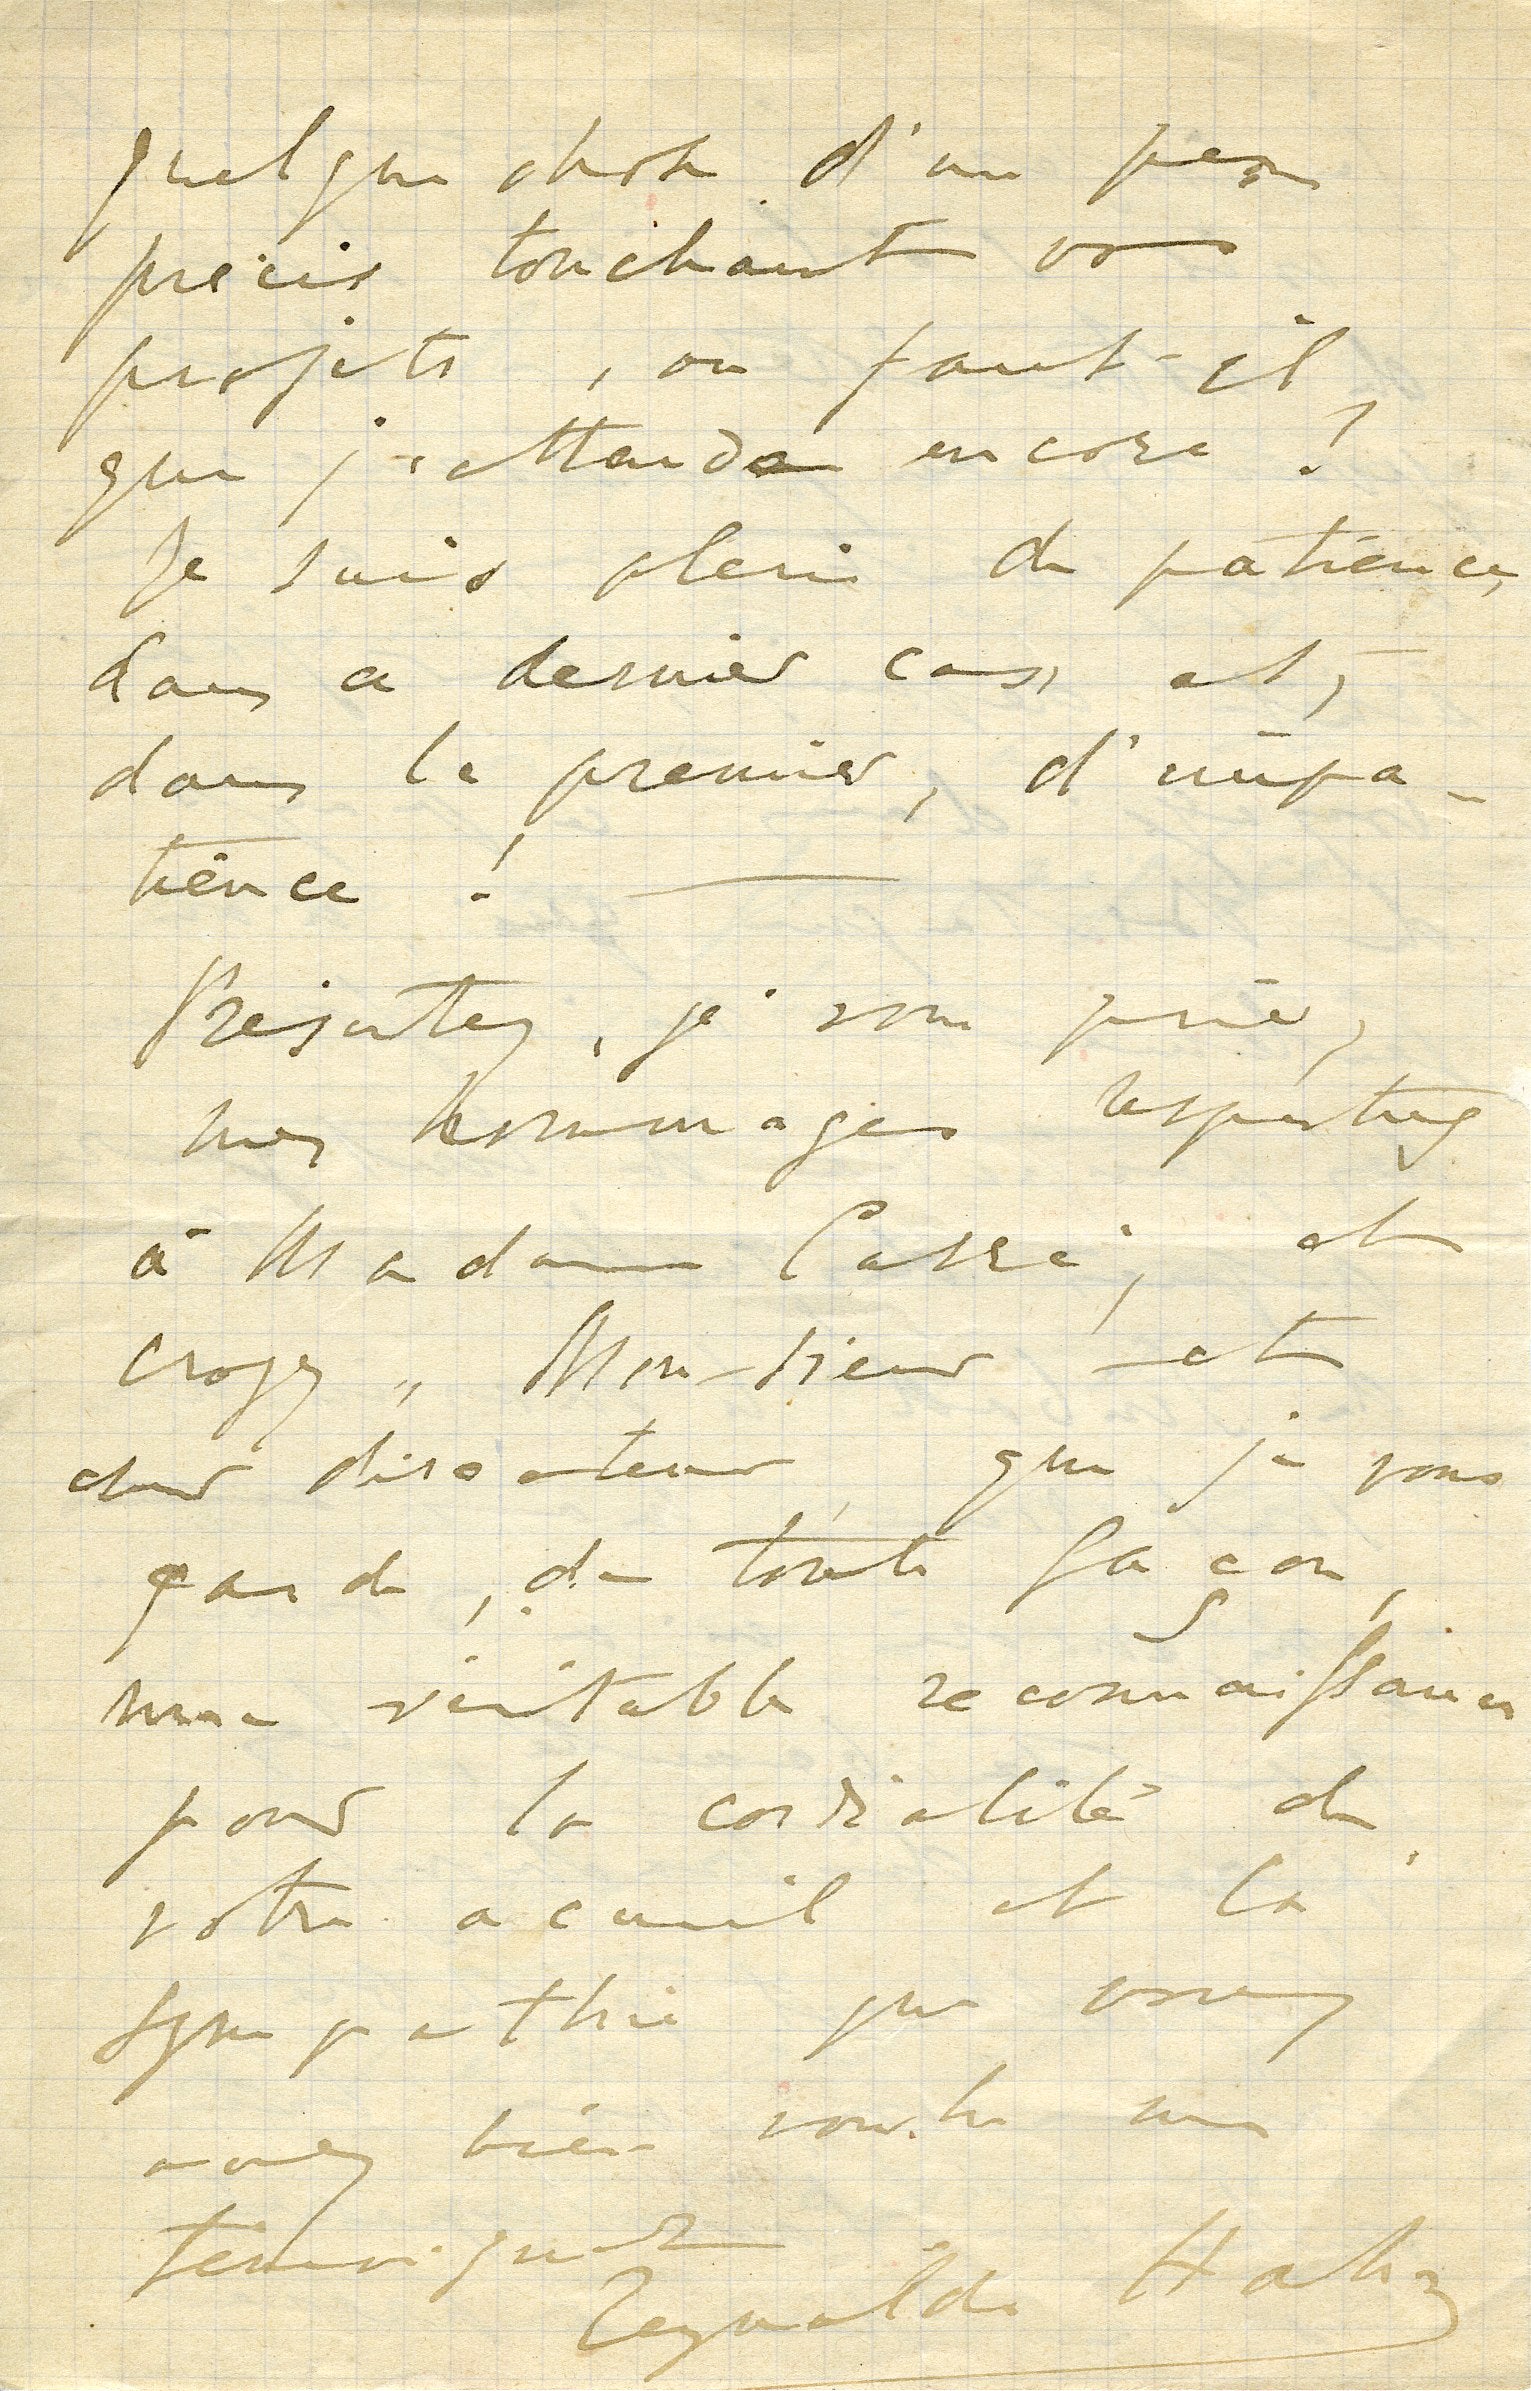 quelque chose d'un peu
précis touchant vos
projets, ou faut-il
que j'attende encore ?
Je suis plein de patience,
dans ce dernier cas, et,
dans le premier, d'impa-
tience !
Présentez, je vous prie,
mes hommages respectueux
à Madame Carré, et
croyez, Monsieur et
cher directeur, que je vous
garde, de toute façon,
une véritable reconnaissance
pour la cordialité de
votre accueil et la
sympathie que vous
avez bien voulu me
témoigner
Reynaldo Hahn